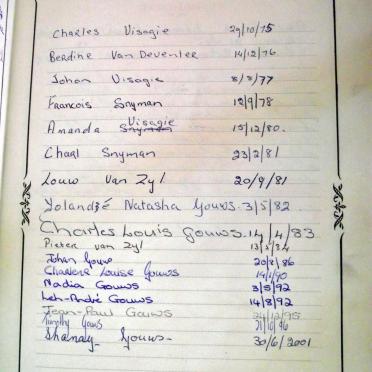 Charles Visagie 29/10/75
Berdine Van Deventer 14/12/76
Johan Visagie 8/8/77
Francois Snyman 12/9/78
Amanda Snyman Visagie 15/12/80.
Charl Snyman 23/2/81
Louw Van Zyl 20/9/81
Yolandé Natasha Gouws. 3/5/82
Charles Louis Gouws. 14/4/83
Pieter van Zyl
Johan Gouws 20/8/86
Charlene Louise Gouws 19/1/90
Nadia Gouws 3/5/92
Leh-André Gouws 14/8/92
Jean-Paul Gouws 24/12/95
Timothy Gouws
Shanay Gouws- 30/6/2001